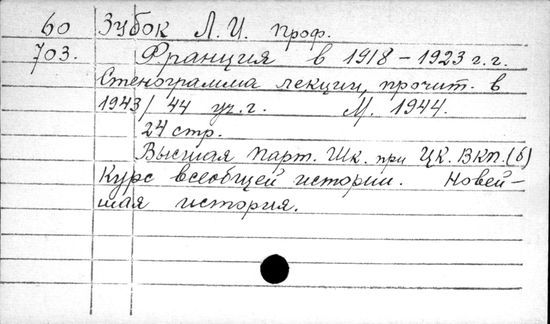 60 Зубок Л. И. проф.
703. Франция в 1918-1923 г.г.
Стенограмма лекции, прочит. в
1943/44 уч. г. М. 1944.
24 стр.
Высшая Парт. Шк. при ЦК. ВКП. (б)
Курс всеобщей истории. Новей-
шая история.